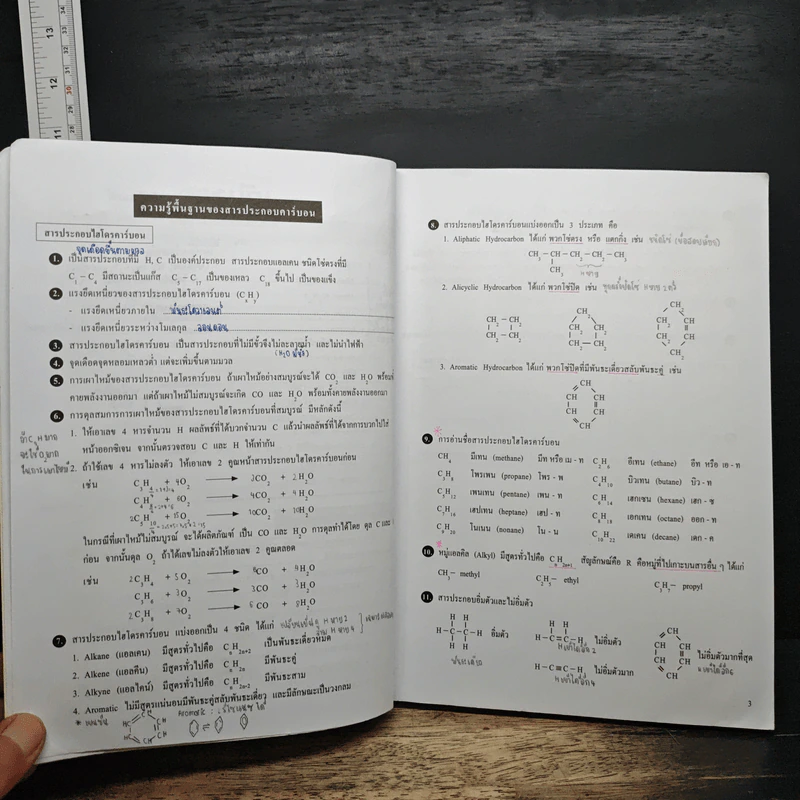 ความรู้พื้นฐานของสารประกอบคาร์บอน
สารประกอบไฮโดรคาร์บอน
จุดเดือดขึ้นตามมวล
1. เป็นสารประกอบที่มี H, C เป็นองค์ประกอบ สารประกอบแอลเคน ชนิดโซ่ตรงที่มี
C1 – C4 มีสถานะเป็นแก๊ส C5 – C17 เป็นของเหลว C18 ขึ้นไป เป็นของแข็ง
2. แรงยึดเหนี่ยวของสารประกอบไฮโดรคาร์บอน (CxHy)
- แรงยึดเหนี่ยวภายใน พันธะโควาเลนต์
- แรงยึดเหนี่ยวระหว่างโมเลกุล ลอนดอน
3. สารประกอบไฮโดรคาร์บอน เป็นสารประกอบที่ไม่มีขั้วจึงไม่ละลายน้ำ และไม่นำไฟฟ้า
(H2O มีขั้ว)
4. จุดเดือดจุดหลอมเหลวต่ำ แต่จะเพิ่มขึ้นตามมวล
5. การเผาไหม้ของสารประกอบไฮโดรคาร์บอน ถ้าเผาไหม้อย่างสมบูรณ์จะได้ CO2 และ H2O พร้อมทั้ง
คายพลังงานออกมา แต่ถ้าเผาไหม้ไม่สมบูรณ์จะเกิด CO และ H2O พร้อมทั้งคายพลังงานออกมา
6. การดุลสมการการเผาไหม้ของสารประกอบไฮโดรคาร์บอนที่สมบูรณ์ มีหลักดังนี้
1. ให้เอาเลข 4 หารจำนวน H ผลลัพธ์ที่ได้บวกจำนวน C แล้วนำผลลัพธ์ที่ได้จากการบวกไปใส่
หน้าออกซิเจน จากนั้นตรวจสอบ C และ H ให้เท่ากัน
2. ถ้าใช้เลข 4 หารไม่ลงตัว ให้เอาเลข 2 คูณหน้าสารประกอบไฮโดรคาร์บอนก่อน
เช่น C3H4 + 4O2 → 3CO2 + 2H2O
C4H8 + 6O2 → 4CO2 + 4H2O
2C5H10 + 15O2 → 10CO2 + 10H2O
ในกรณีที่เผาไหม้ไม่สมบูรณ์ จะได้ผลิตภัณฑ์ เป็น CO และ H2O การดุลทำได้โดย ดุล C และ
ก่อน จากนั้นดุล O2 ถ้าได้เลขไม่ลงตัวให้เอาเลข 2 คูณตลอด
7. สารประกอบไฮโดรคาร์บอน แบ่งออกเป็น 4 ชนิด ได้แก่
1. Alkane (แอลเคน) มีสูตรทั่วไปคือ CnH2n+2 เป็นพันธะเดี่ยวหมด
2. Alkene (แอลคีน) มีสูตรทั่วไปคือ CnH2n มีพันธะคู่
3. Alkyne (แอลไคน์) มีสูตรทั่วไปคือ CnH2n-2 มีพันธะสาม
4. Aromatic ไม่มีสูตรแน่นอนมีพันธะคู่สลับพันธะเดี่ยว และมีลักษณะเป็นวงกลม
8. สารประกอบไฮโดรคาร์บอนแบ่งออกเป็น 3 ประเภท คือ
1. Aliphatic Hydrocarbon ได้แก่ พวกโซ่ตรง หรือ แตกกิ่ง เช่น
CH3 – CH – CH2 – CH2 – CH3
CH3
2. Alicyclic Hydrocarbon ได้แก่ พวกโซ่ปิด เช่น
CH2 – CH2
CH2 – CH2
3. Aromatic Hydrocarbon ได้แก่ พวกโซ่ปิดที่มีพันธะเดี่ยวสลับพันธะคู่ เช่น
9. การอ่านชื่อสารประกอบไฮโดรคาร์บอน
CH4 มีเทน (methane) มีท หรือ เม - ท C2H6 อีเทน (ethane) อีท หรือ เอ - ท
C3H8 โพรเพน (propane) โพร - พ C4H10 บิวเทน (butane) บิว - ท
C5H12 เพนเทน (pentane) เพน - ท C6H14 เฮกเซน (hexane) เฮก - ซ
C7H16 เฮปเทน (heptane) เฮป - ท C8H18 ออกเทน (octane) ออก - ท
C9H20 โนเนน (nonane) โน - น C10H22 เดเคน (decane) เดก - ค
10. หมู่แอลคิล (Alkyl) มีสูตรทั่วไปคือ CnH2n+1 สัญลักษณ์คือ R คือหมู่ที่ไปเกาะบนสารอื่น ๆ ได้แก่
CH3 – methyl C2H5 – ethyl C3H7 – propyl
11. สารประกอบอิ่มตัวและไม่อิ่มตัว
อิ่มตัว
ไม่อิ่มตัว
ไม่อิ่มตัวมากที่สุด
H – C ≡ C – H ไม่อิ่มตัวมาก
3